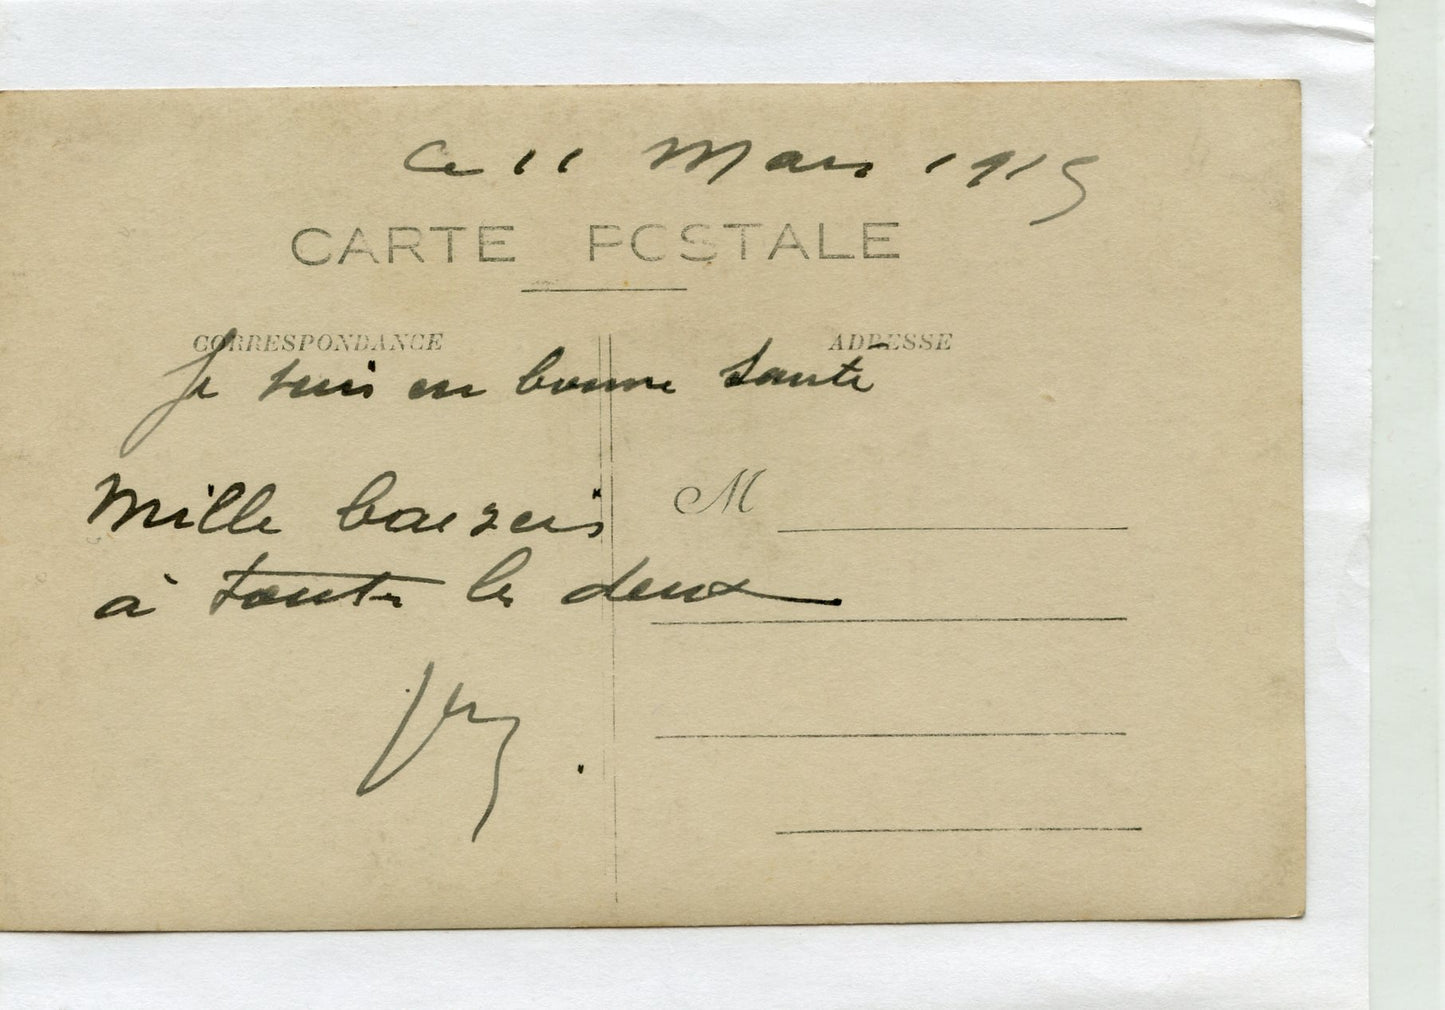 Ce 11 Mars 1915
CARTE POSTALE
CORRESPONDANCE
ADRESSE
Je suis en bonne santé
Mille baesers
à toute les deux
M